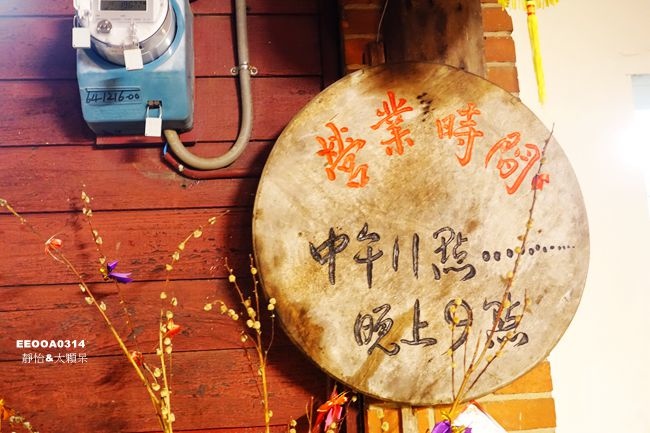 64-1216-00
營業時間
中午11點…………
晚上9點
EEOOA0314
靜怡&大顆呆